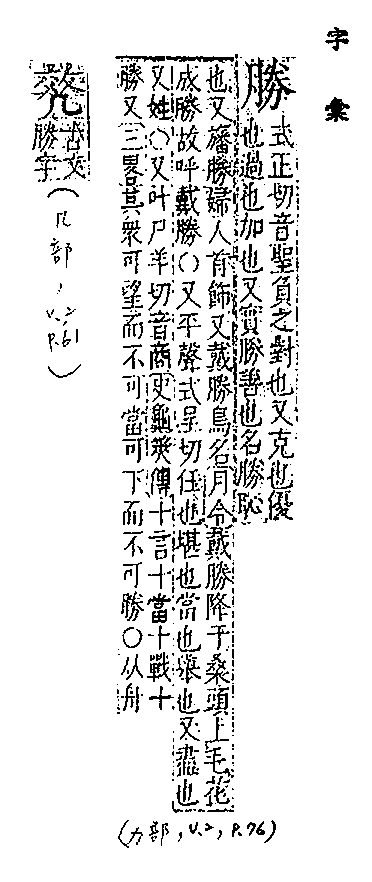 字彙
勝
式正切音聖負之對也又克也優
也過也加也又實勝善也名勝恥
也又旛勝婦人首飾又戴勝鳥名月令戴勝降于桑頭上毛花
成勝故呼戴勝○又平聲式呈切任也堪也當也舉也又盡也
又姓○又叶尸羊切音商史龜筴傳十言十當十戰十
勝又三畧其衆可望而不可當可下而不可勝○从舟
(力部, V.2, P.76)
古文
勝字
(几部, V.2, P.61)